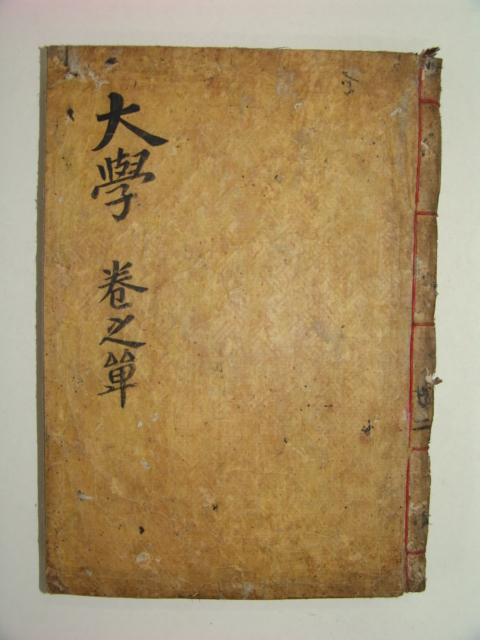 大學 卷之單